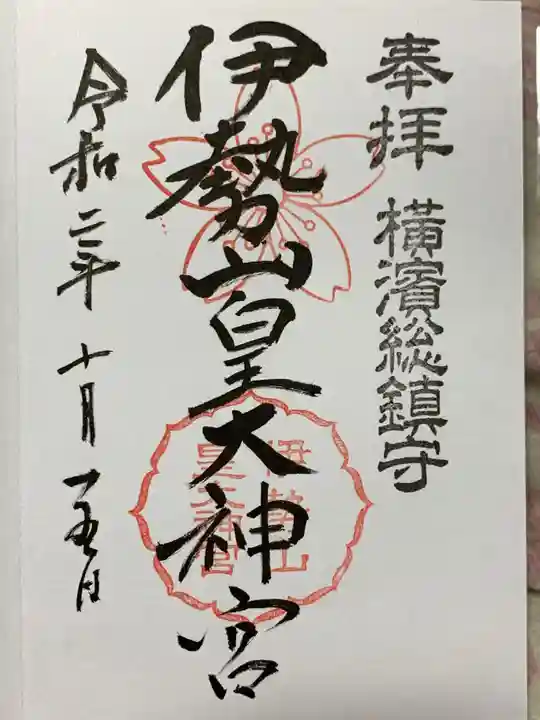 奉拝 横濱総鎮守
伊勢山皇大神宮
伊勢山
皇大神宮
令和二年 十月 一五日